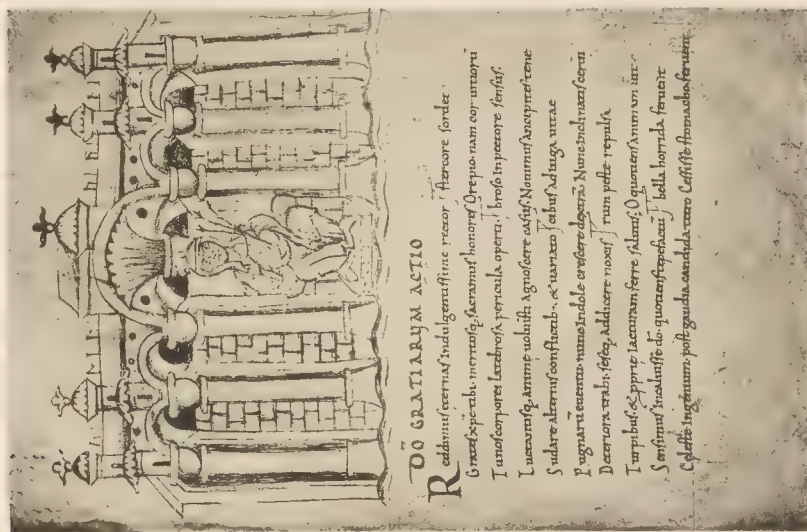 DŌO GRATIARVM ACTIO
Reddimus eternas indulgentissime rector stercore sordet·
Grates xpe tibi meritosq; sacramus honores Ore pio nam cor uitiorū
Tu nos corporei latebrosa pericula operti broso in pectore sensus.
Luctantisq; anime uoluisti agnoscere casus. Nouimus ancipites tene
Sudare alternis conflictib; & uariato cibus ad iuga uitae
Pugnarū euentu nunc indole crescere dextrā Nunc inclinatis cerui
Deteriora trahi seseq; addicere noxiis rum poste repulsa
Turpibus, & pprie iacturam ferre salutis. O quotiens animam uiti
Sensimus incaluisse dō. quotiens tepefactū bella horrida feruent
Celeste ingenium post gaudia candida tetro Cessisse stomacho feruent